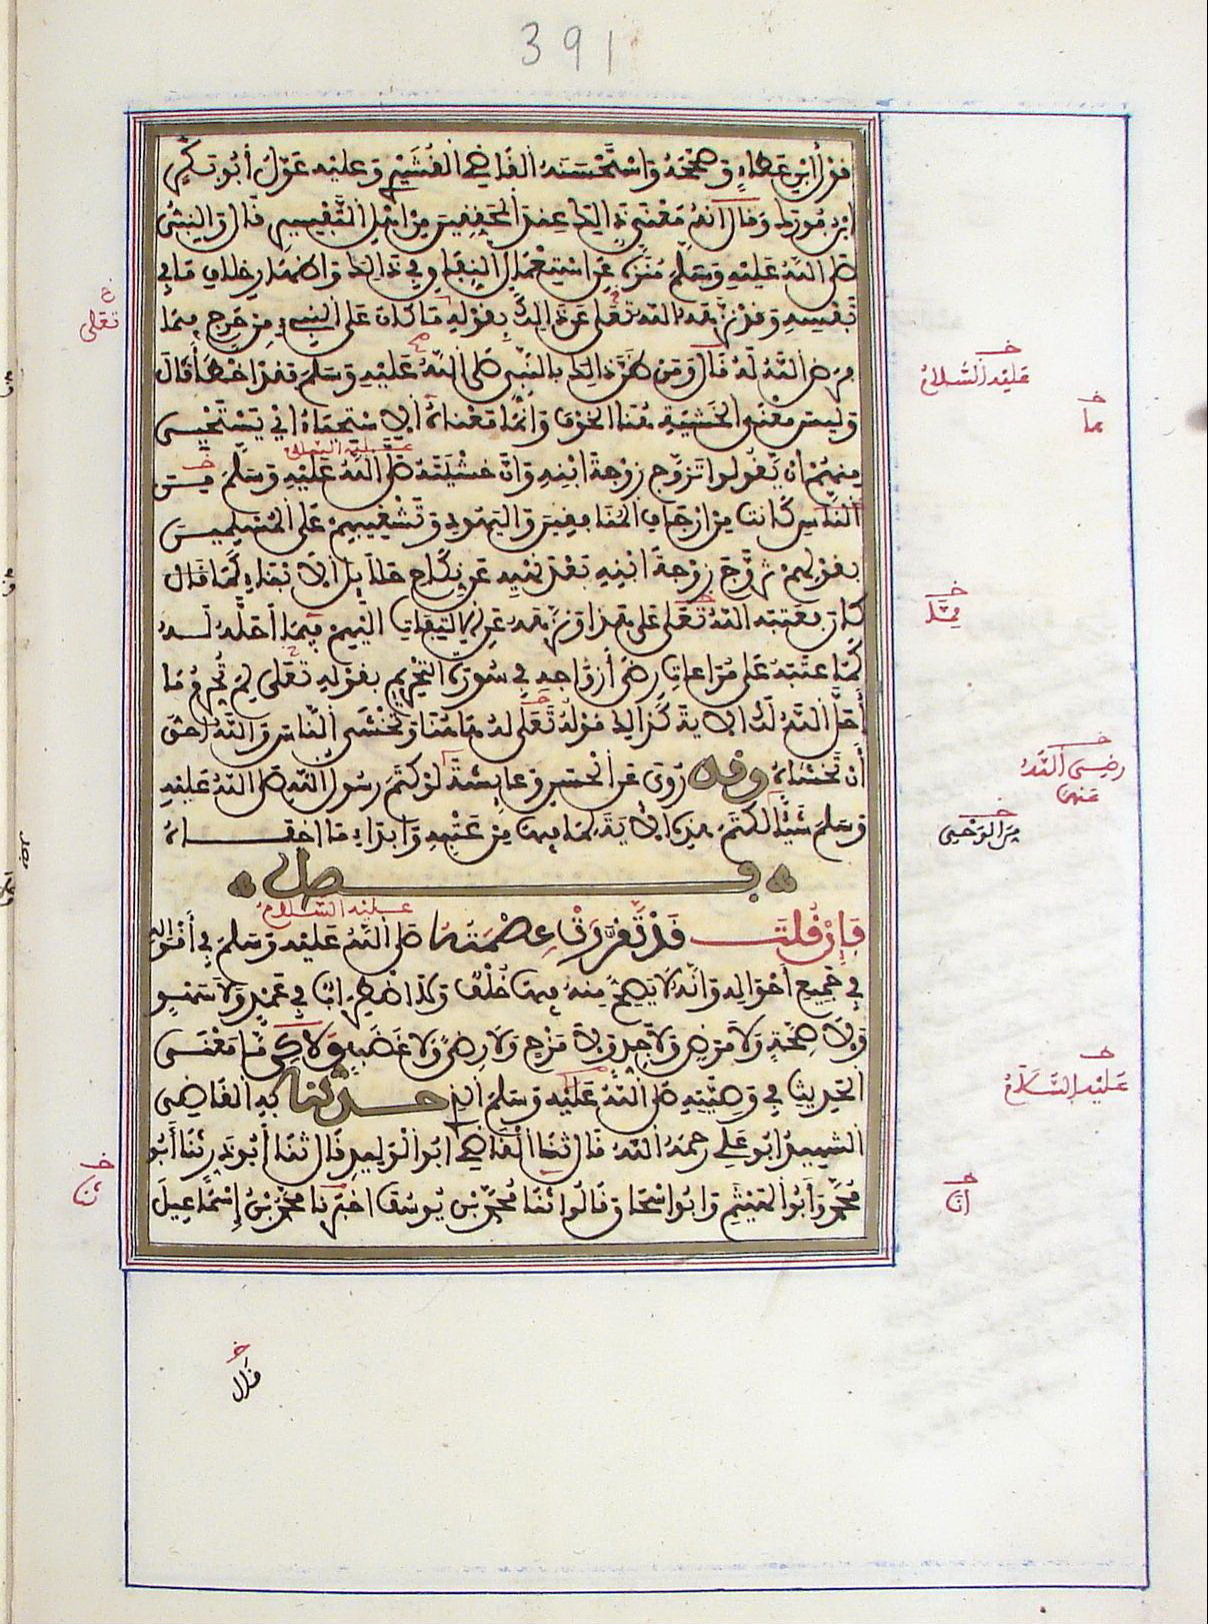 391
قول ابن عطاء وصححه واستحسنه القاضي القشيري وعليه عول أبو بكر
ابن فورك وقال انه معنى ذالك عند المحققين من اهل التفسير قال والنبي
صلى الله عليه وسلم منزه عن استعمال النفاق في ذالك واظهار خلاف ما في
نفسه وقد نزهه الله تعلى عن ذالك بقوله ما كان على النبيء من حرج فيما
فرض الله له قال ومن ظن ذالك بالنبي صلى الله عليه وسلم فقد اخطأ قال
وليس معنى الخشية هنا الخوف وانما معناه الاستحياء اي يستحيي
منهم ان يقولوا تزوج زوجة ابنه وان خشيته صلى الله عليه وسلم من
عليه السلام
الناس كانت من ارجاف المنافقين واليهود وتشغيبهم على المسلمين
بقولهم تزوج زوجة ابنه بعد نهيه عن نكاح حلائل الابناء كما قال
كان فعتبه الله تعلى على هذا ونزهه عن الالتفات اليهم فيما احله له
كما عتبه على مراعات رضى أزواجه في سورة التحريم بقوله تعلى لم تحرم ما
أحل الله لك الاية كذالك قوله تعلى له هاهنا وتخشى الناس والله احق
أن تخشاه وقد روي عن الحسن وعايشة لو كتم رسول الله صلى الله عليه
وسلم شيئا لكتم هذه الاية لما فيها من عتبه وابداء ما اخفاه
فصل
عليه السلام
فإن قلت قد تقررت عصمته صلى الله عليه وسلم في أقواله
في جميع أحواله وانه لا يصح منه فيها خلف ولا اضطراب في عمد ولا سهو
ولا صحة ولا مرض ولا جد ولا مزح ولا رضى ولا غضب ولاكن ما معنى
الحديث في وصيته صلى الله عليه وسلم الذي حدثنا به القاضي
الشهيد ابو علي رحمه الله قال ثنا القاضي ابو الوليد قال ثنا أبو ذر ثنا أبو
محمد وأبو الهيثم وابو اسحاق قالوا ثنا محمد بن يوسف اخبرنا محمد بن إسماعيل
تعلى
خ
عليه السلام
خ
ما
خ
خ
رضي الله
عنها
خ
من الوحي
خ
عليه السلام
خ
ثنا
خ
انا
خ
قال